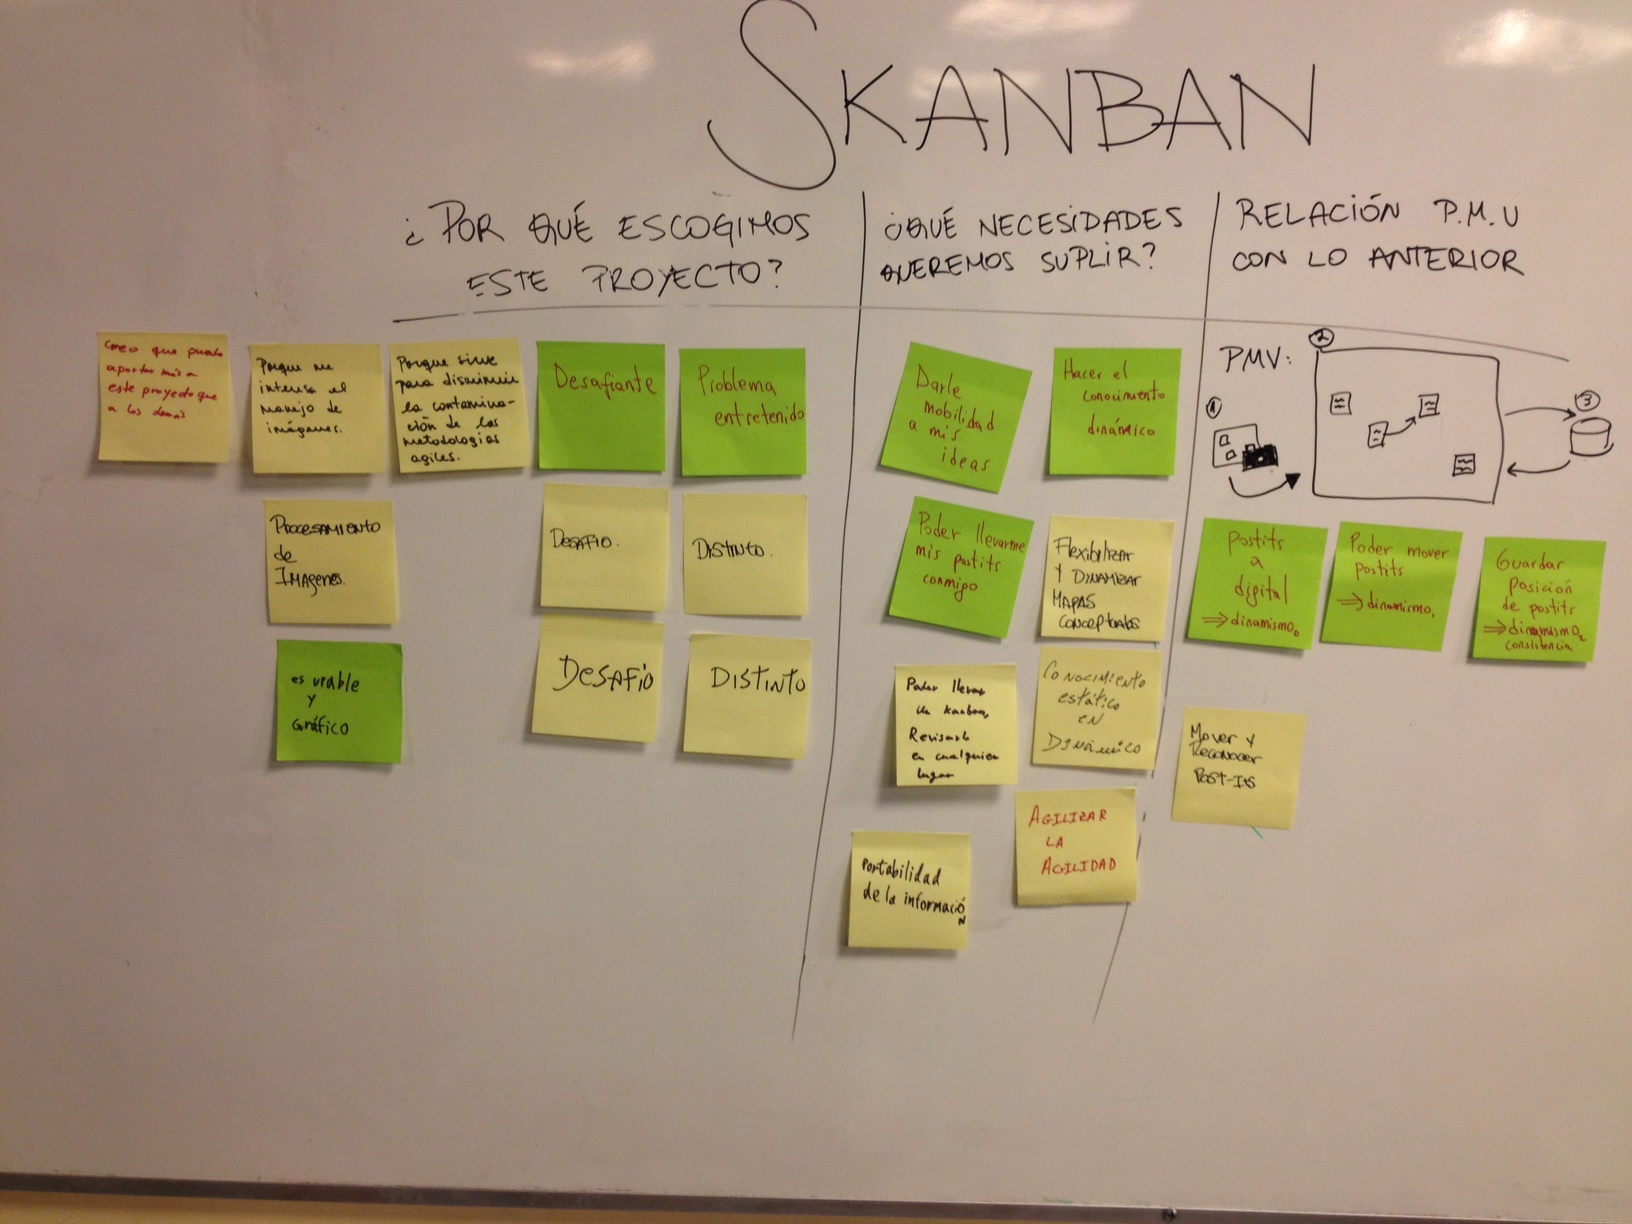 SKANBAN
¿POR QUÉ ESCOGIMOS
ESTE PROYECTO?
¿QUÉ NECESIDADES
QUEREMOS SUPLIR?
RELACIÓN P.M.V
CON LO ANTERIOR
Creo que puedo
aportar más a
este proyecto que
a los demás
Porque me
interesa el
manejo de
imágenes.
Porque sirve
para disminuir
la contamina-
ción de las
metodologías
agiles.
Desafiante
Problema
entretenido
PROCESAMIENTO
de
IMAGENES.
DESAFIO.
DISTINTO.
es usable
y
Gráfico
DESAFIO
DISTINTO
Darle
mobilidad
a mis
ideas
Hacer el
conocimiento
dinámico
Poder llevarme
mis postits
conmigo
Flexibilizar
Y DINAMIZAR
MAPAS
CONCEPTUALES
Poder llevar
un kanban,
Revisarlo
en cualquier
lugar
CONOCIMIENTO
estático
EN
DINÁMICO
Portabilidad
de la informació
N
AGILIZAR
LA
AGILIDAD
PMV:
1
2
3
Postits
a
digital
⇒ dinamismo
Poder mover
postits
⇒ dinamismo
Guardar
posición
de postits
⇒ dinamismo
consistencia
Mover y
Reconocer
Post-its